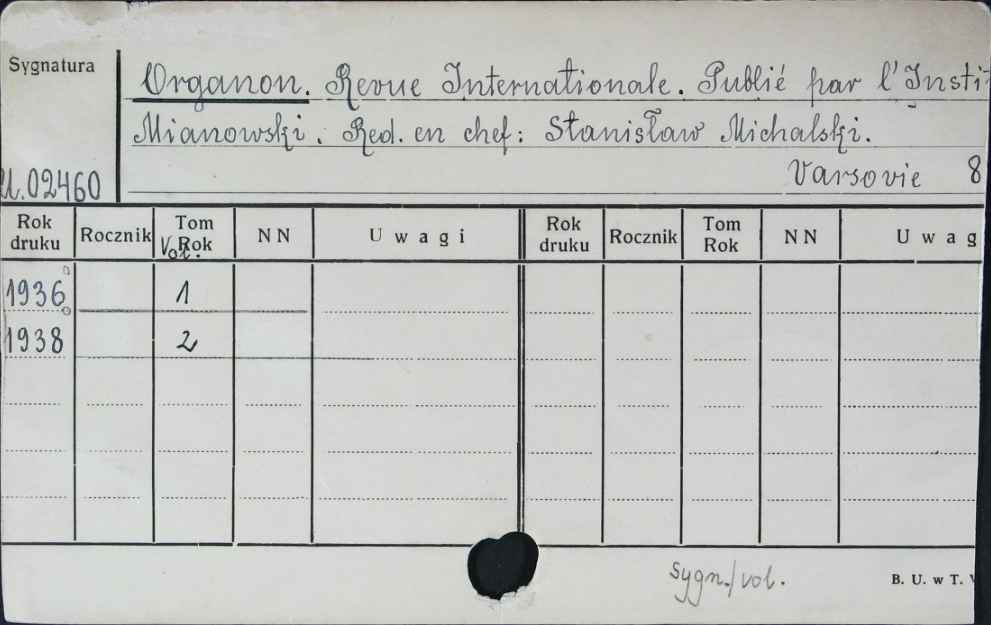 Sygnatura
Organon. Revue Internationale. Publié par l'Insti
Mianowski. Red. en chef: Stanisław Michalski.
Varsovie 8
U.02460
Rok druku Rocznik Tom Rok Vol. NN Uwagi Rok druku Rocznik Tom Rok NN Uwag
1936 1
1938 2
sygn./vol.
B. U. w T.